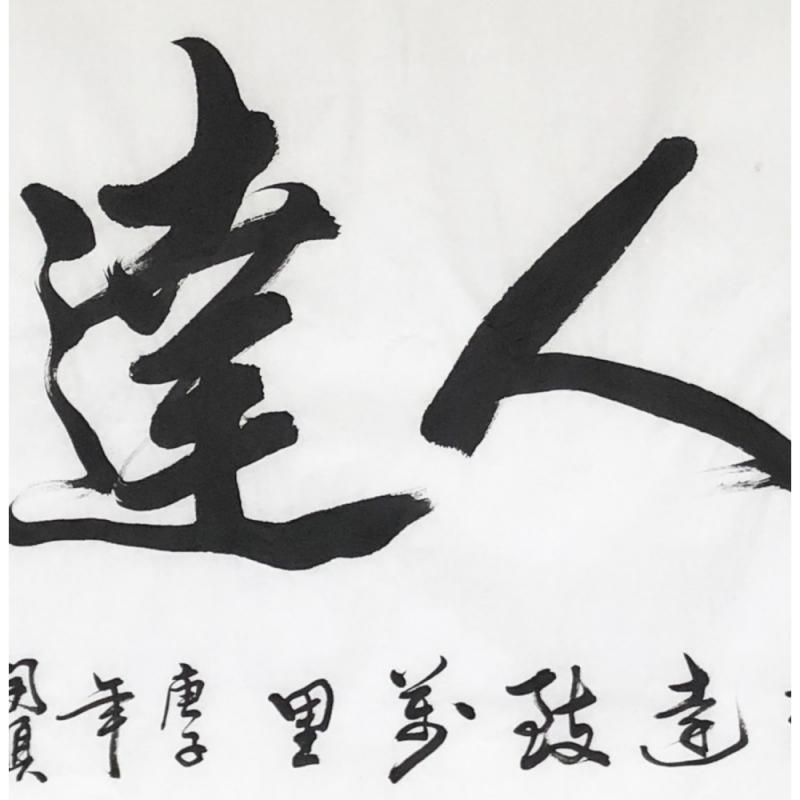 人達
達致萬里庚子年